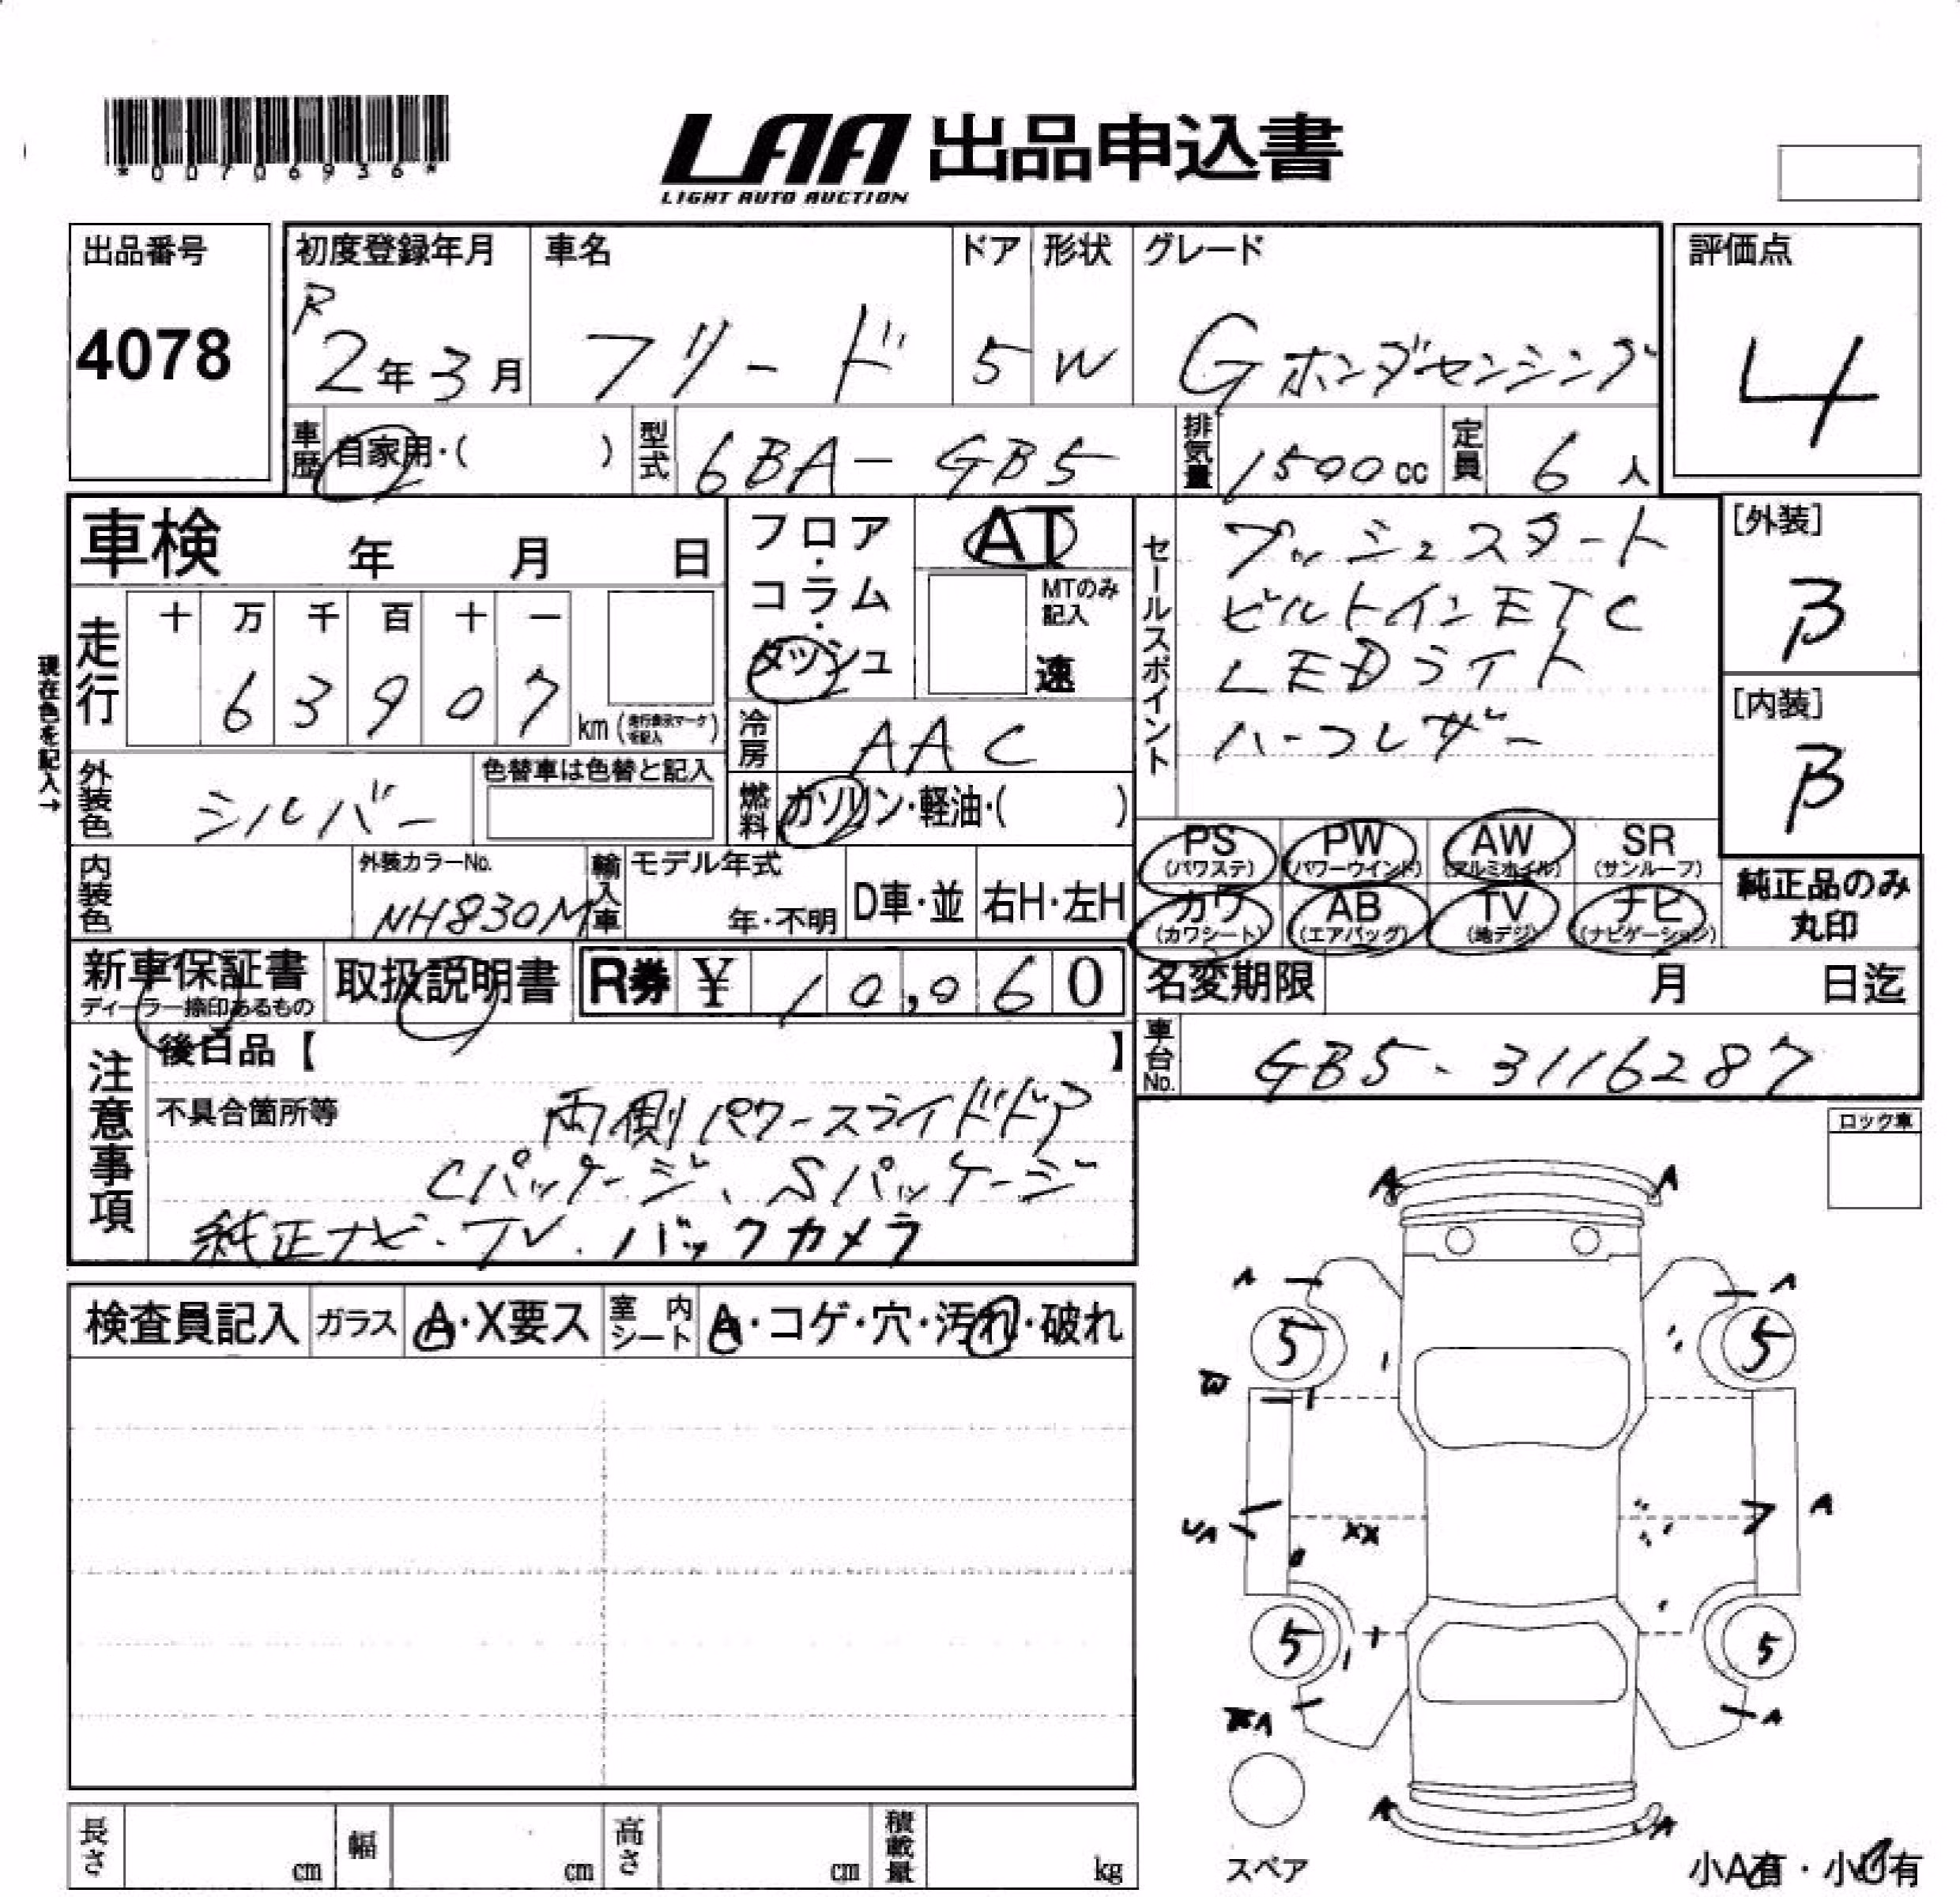 *00706936*
LAA 出品申込書
LIGHT AUTO AUCTION
出品番号 初度登録年月 車名 ドア 形状 グレード 評価点
4078 R2年3月 フリード 5 W Gホンダセンシング 4
車歴 自家用・( ) 型式 6BA-GB5 排気量 1500cc 定員 6人
車検 年 月 日
フロア・コラム・ダッシュ AT
MTのみ記入
速
セールスポイント
プッシュスタート
ビルトインETC
LEDライト
ハーフレザー
[外装]
B
[内装]
B
現在色を記入→
走行 十 万 千 百 十 一
6 3 9 0 7 km (走行表示マークを記入)
冷房 AAC
外装色 シルバー 色替車は色替と記入
燃料 ガソリン・軽油・( )
PS PW AW SR
(パワステ) (パワーウインド) (アルミホイル) (サンルーフ)
カワ AB TV ナビ
(カワシート) (エアバッグ) (地デジ) (ナビゲーション)
純正品のみ
丸印
内装色 外装カラーNo. NH830M 輸入車 モデル年式 年・不明 D車・並 右H・左H
新車保証書 取扱説明書 R券 ¥ 10,060
ディーラー捺印あるもの
名変期限 月 日迄
車台No. GB5-3116287
注意事項
後日品【 】
不具合箇所等 両側パワースライドドア
Cパッケージ、Sパッケージ
純正ナビ・TV・バックカメラ
ロック車
検査員記入 ガラス A・X要ス 室内シート A・コゲ・穴・汚れ・破れ
A A
A A
5 5
W
UA XX A
5 5
A
A UA
スペア
小A有・小U有
長さ cm 幅 cm 高さ cm 積載量 kg